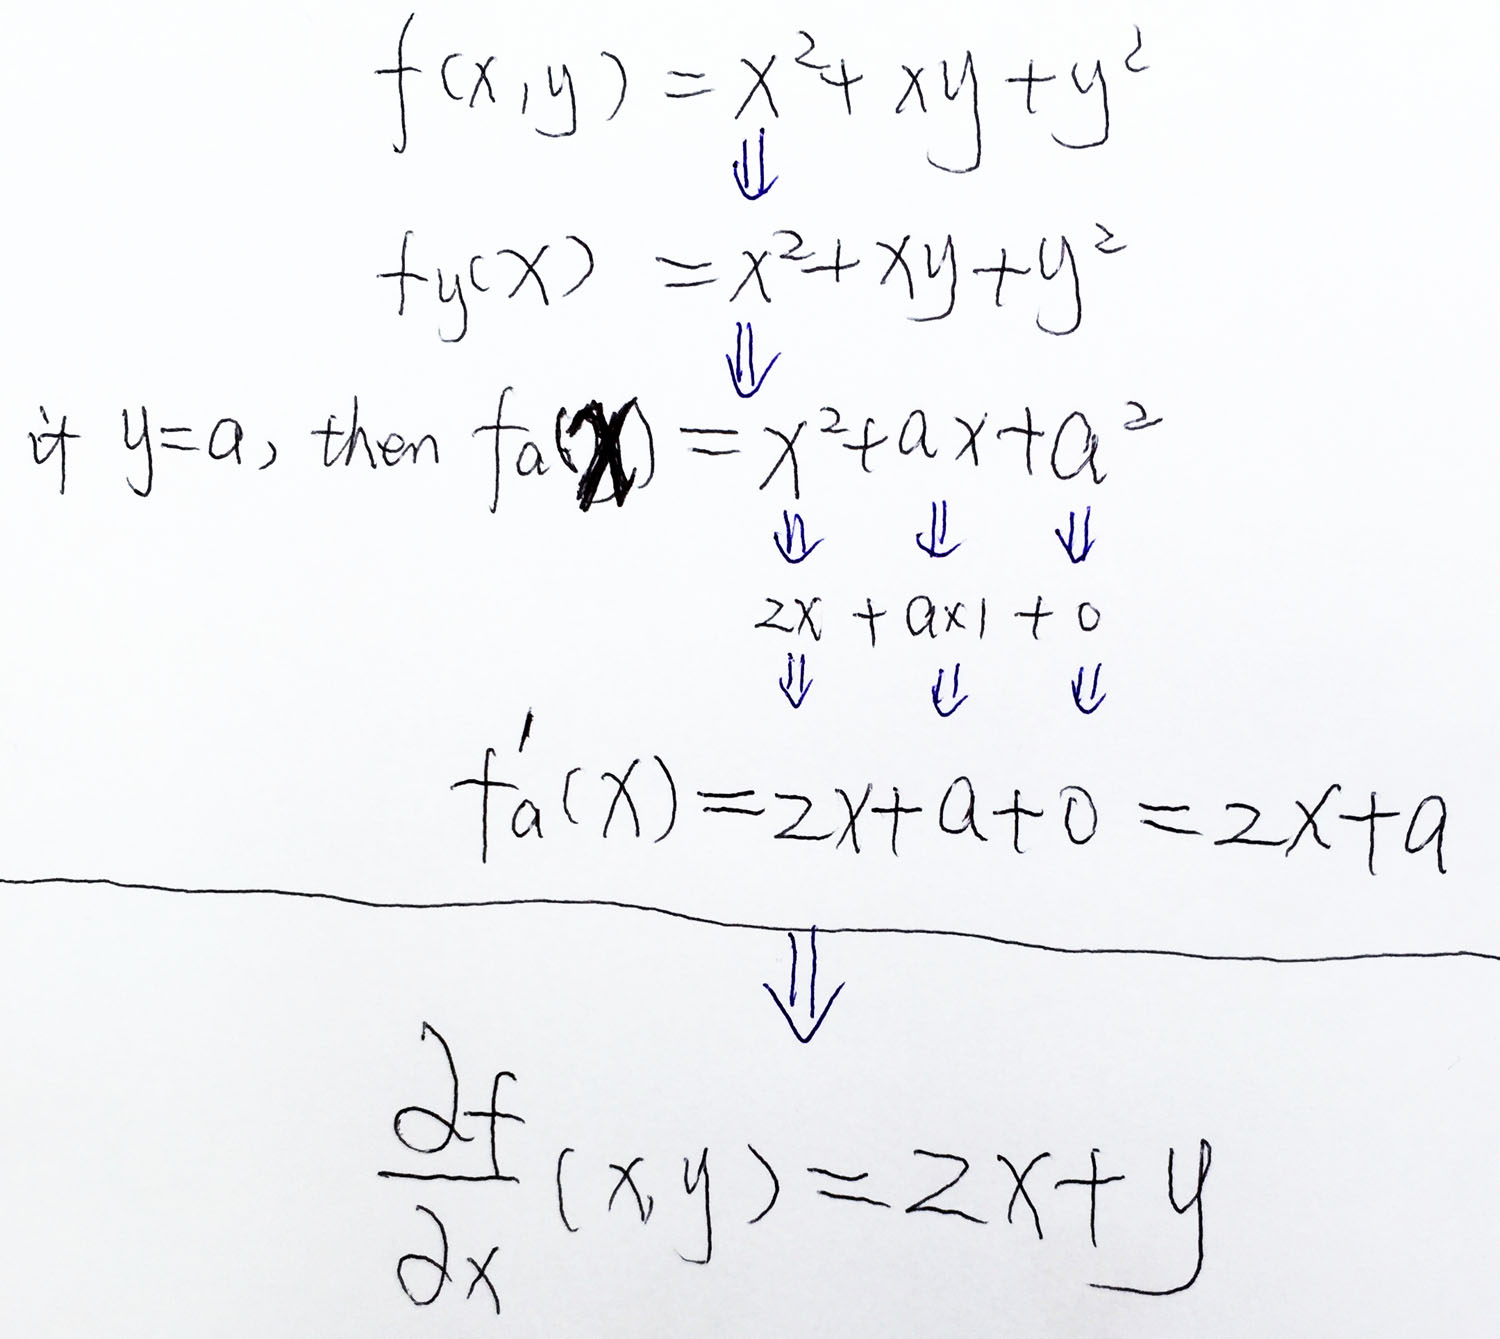 f(x,y) = x² + xy + y²
⇓
fy(x) = x² + xy + y²
⇓
if y=a, then fa(x) = x² + ax + a²
⇓ ⇓ ⇓
2x + a×1 + 0
⇓ ⇓ ⇓
f'a(x) = 2x + a + 0 = 2x + a
⇓
∂f/∂x (x,y) = 2x + y